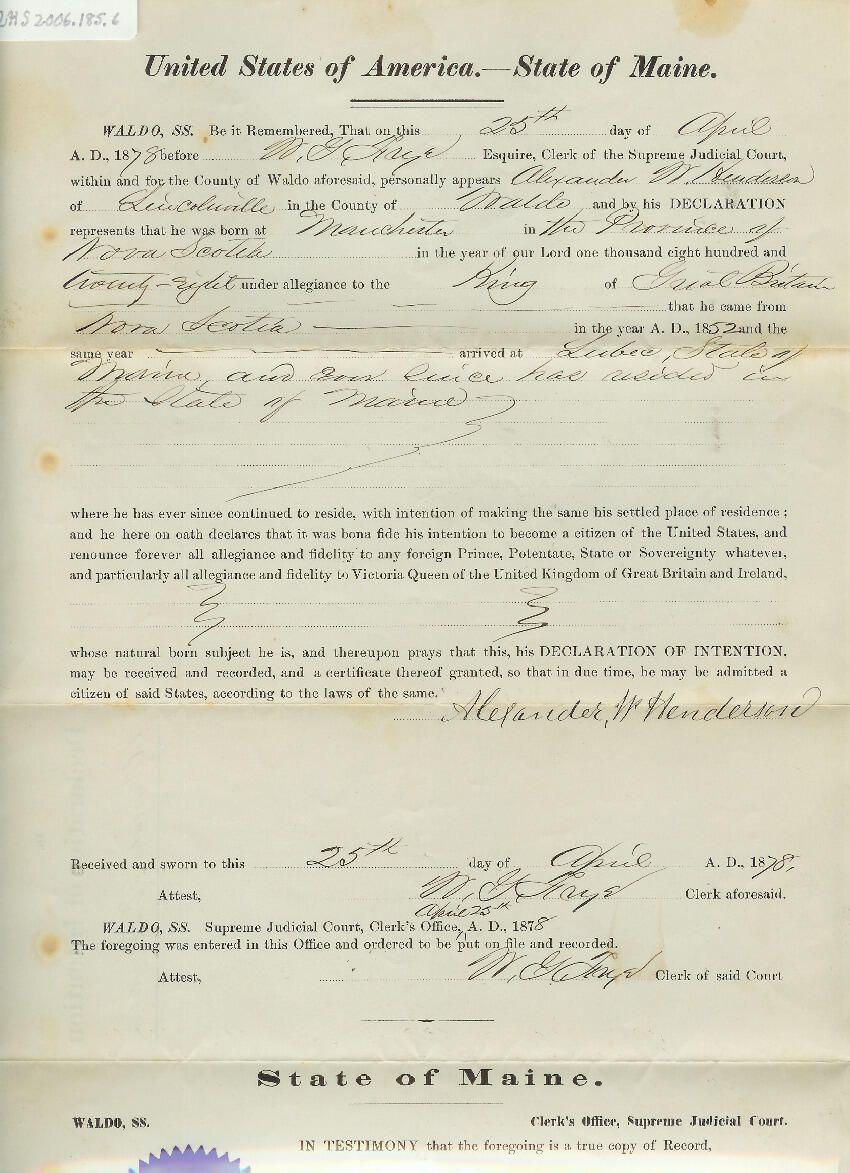 LHS 2006.185.6
United States of America.—State of Maine.
WALDO, SS. Be it Remembered, That on this 25th day of April
A. D., 1878 before W. G. Frye Esquire, Clerk of the Supreme Judicial Court,
within and for the County of Waldo aforesaid, personally appears Alexander W. Henderson
of Lincolnville in the County of Waldo and by his DECLARATION
represents that he was born at Manchester in the Province of
Nova Scotia in the year of our Lord one thousand eight hundred and
twenty-eight under allegiance to the King of Great Britain
that he came from
Nova Scotia in the year A. D., 1852 and the
same year arrived at Lubec, State of
Maine, and ever since has resided in
the State of Maine
where he has ever since continued to reside, with intention of making the same his settled place of residence ;
and he here on oath declares that it was bona fide his intention to become a citizen of the United States, and
renounce forever all allegiance and fidelity to any foreign Prince, Potentate, State or Sovereignty whatever,
and particularly all allegiance and fidelity to Victoria Queen of the United Kingdom of Great Britain and Ireland,
whose natural born subject he is, and thereupon prays that this, his DECLARATION OF INTENTION,
may be received and recorded, and a certificate thereof granted, so that in due time, he may be admitted a
citizen of said States, according to the laws of the same.
Alexander, W Henderson
Received and sworn to this 25th day of April A. D., 1878.
Attest, W. G. Frye Clerk aforesaid.
April 25th
WALDO, SS. Supreme Judicial Court, Clerk's Office, A. D., 1878
The foregoing was entered in this Office and ordered to be put on file and recorded.
Attest, W. G. Frye Clerk of said Court
State of Maine.
WALDO, SS. Clerk's Office, Supreme Judicial Court.
IN TESTIMONY that the foregoing is a true copy of Record,